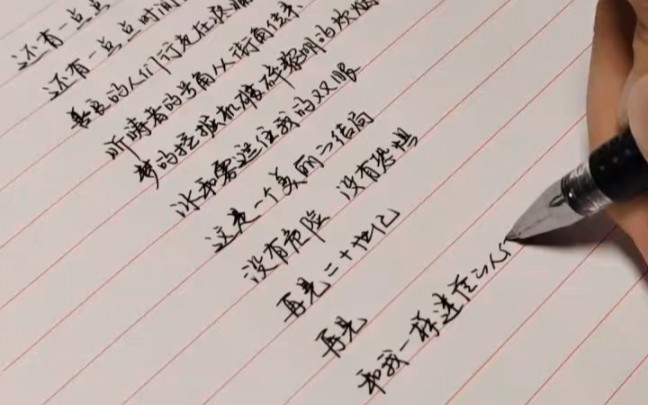 还有一点点
还有一点点时间
善良的人们行走在
听时者的号角从街角传来
梦的挖掘机碾碎黎明的炊烟
冰和雾遮住我的双眼
这是一个美丽的结局
没有危险 没有恐惧
再见二十世纪
再见
和我一样迷茫的人们